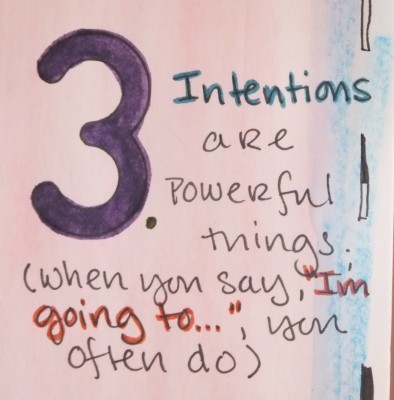 3. Intentions
are
powerful
things.
(when you say, "I'm
going to...", you
often do)